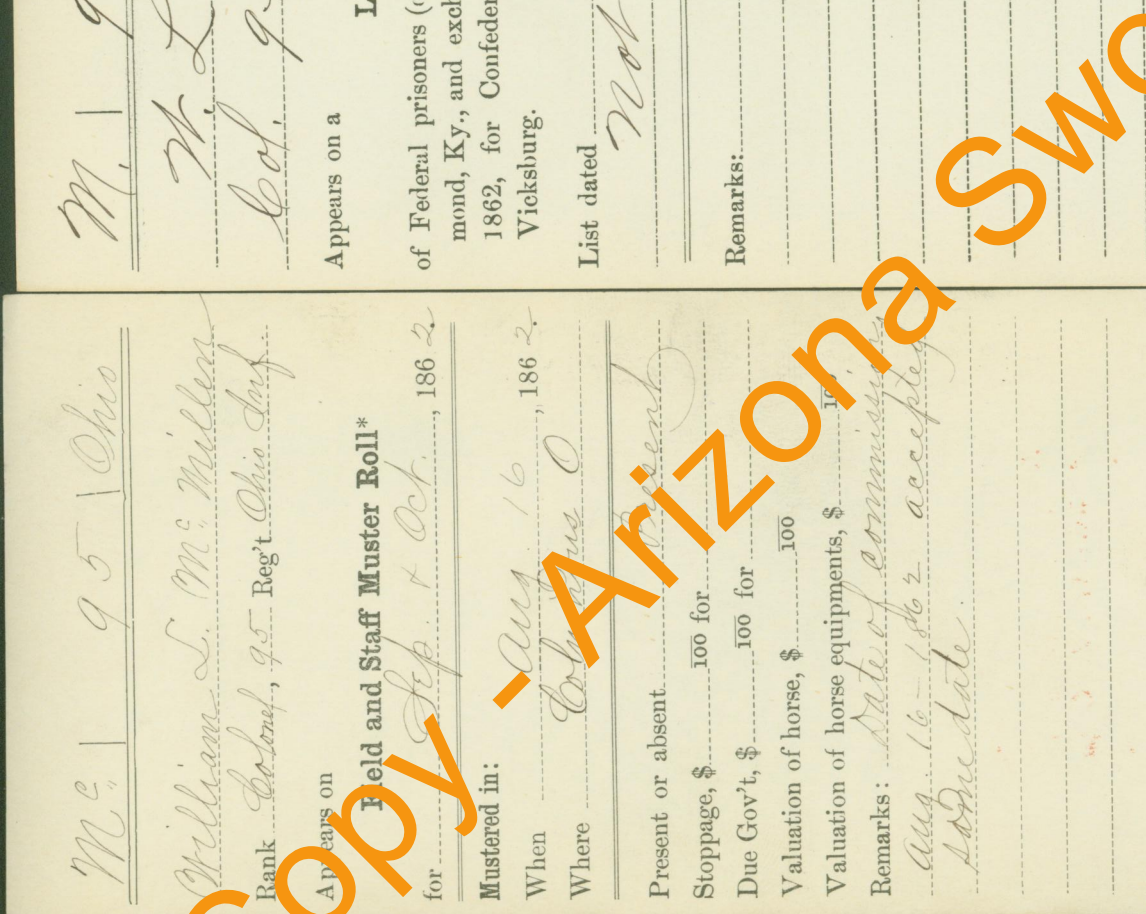 Mc | 95 | Ohio
William L. McMillen
Rank Colonel, 95 Reg't Ohio Inf.
Appears on
Field and Staff Muster Roll*
for Sep. & Oct., 1862.
Mustered in:
When Aug. 16, 1862.
Where Columbus O
Present or absent Present
Stoppage, $ 100 for
Due Gov't, $ 100 for
Valuation of horse, $ 100
Valuation of horse equipments, $ 100
Remarks: Date of commission
Aug. 16 - 1862 accepted
same date.
M. | 9
W. L
Col. 9
Appears on a
L
of Federal prisoners (
mond, Ky., and exch
1862, for Confeder
Vicksburg.
List dated
Not
Remarks:
Copy - Arizona Swo